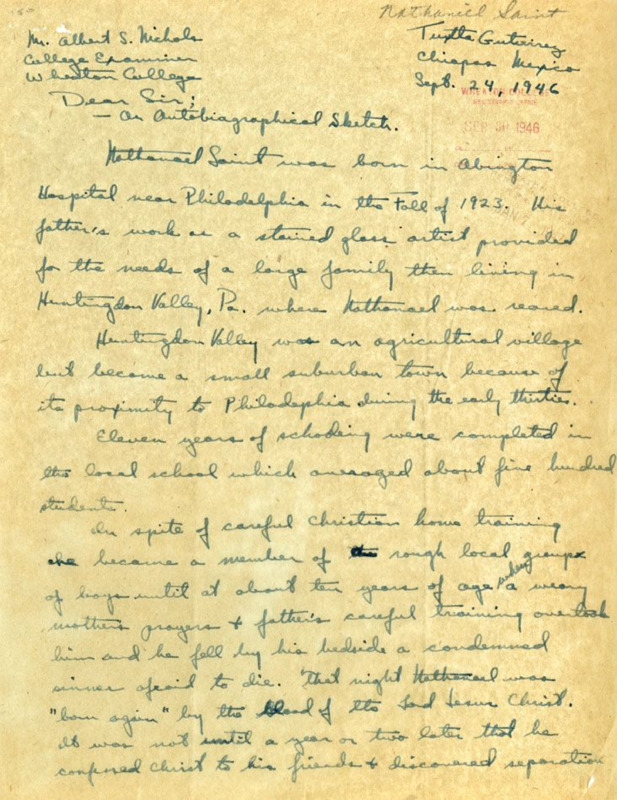 Nathaniel Saint
Mr. Albert S. Nichols
College Examiner
Wheaton College
Tuxtla Gutierrez
Chiapas Mexico
Sept. 24, 1946
WHEATON COLLEGE
SEP 30 1946
Dear Sir;
— An Autobiographical Sketch.
Nathanael Saint was born in Abington
Hospital near Philadelphia in the Fall of 1923. His
father's work as a stained glass artist provided
for the needs of a large family then living in
Huntingdon Valley, Pa. where Nathanael was reared.
Huntingdon Valley was an agricultural village
but became a small suburban town because of
its proximity to Philadephia during the early thirties.
Eleven years of schooling were completed in
the local school which averaged about five hundred
students.
In spite of careful Christian home training
he became a member of rough local groups
of boys until at about ten years of age, when a weary
mothers prayers & father's careful training overtook
him and he fell by his bedside a condemned
sinner afraid to die. That night Nathanael was
"born again" by the blood of the Lord Jesus Christ.
It was not until a year or two later that he
confessed Christ to his friends & discovered separation